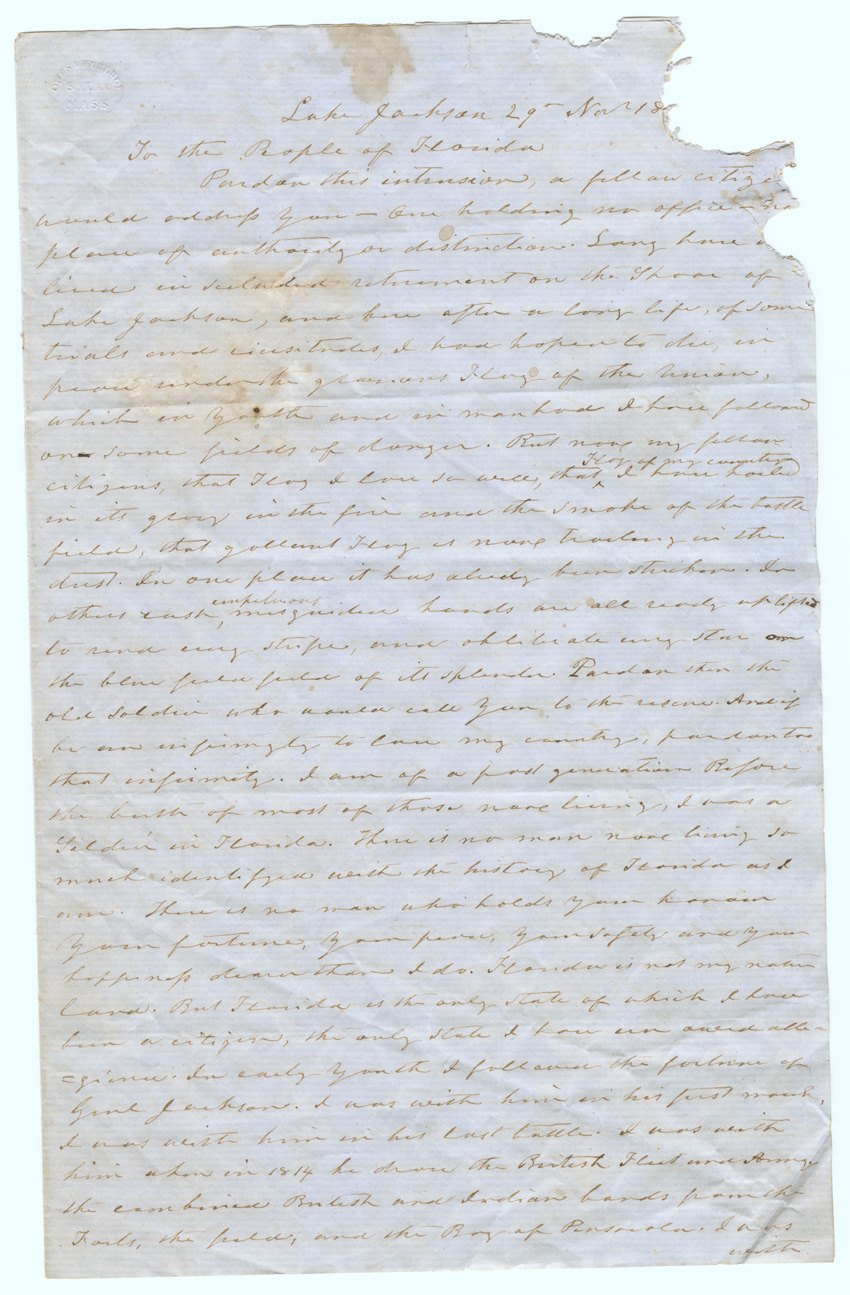 SALEM
MASS
Lake Jackson 29th Novr 18
To the People of Florida
Pardon this intrusion, a fellow citize
would address you — One holding no office — no
place of authority or distinction. Long have I
lived in secluded retirement on the Shore of
Lake Jackson, and here after a long life, of some
trials and vicisitudes, I had hoped to die, in
peace under the glorious Flag of the Union,
which in Youth and in manhood I have followed
on some fields of danger. But now my fellow
citizens, that Flag I love so well, that Flag of my country I have hailed
in its glory in the fire and the smoke of the battle
field, that gallant Flag is now trailing in the
dust. In one place it has alredy been stricken. In
others rash, impetuous misguided hands are all ready uplifted
to rend evry stripe, and obliterate evry star on
the blue field field of its splendor. Pardon then the
old Soldier who would call You to the rescue. And if
be an infirmyty to love my country, pardon too
that infirmity. I am of a past generation Before
the birth of most of those now living, I was a
Soldier in Florida. There is no man now living so
much identifyed with the history of Florida as I
am. There is no man who holds your honour
Your fortune, Your peace, Your safety and your
happiness dearer than I do. Florida is not my native
land. But Florida is the only State of which I have
been a citizen, the only State I have ever owed alle-
=giance. In early Youth I followed the fortune of
Genl Jackson. I was with him in his first march,
I was with him in his last battle. I was with
him when in 1814 he drove the British Fleet and Army
the combined British and Indian bands from the
Forts, the field, and the Bay of Pensacola. I was
with